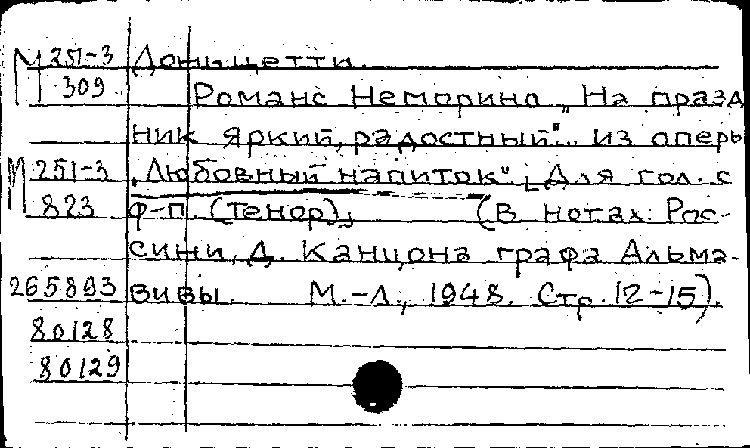 М 251-3 Доницетти.
309 Романс Неморино „На празд
ник яркий, радостный"... из оперы
М 251-3 „Любовный напиток". Для гол. с
823 ф-п. (тенор). (В нотах: Рос-
сини, Д. Канцона графа Альма-
265893 вивы. М.-Л., 1948. Стр. 12-15).
80128
80129